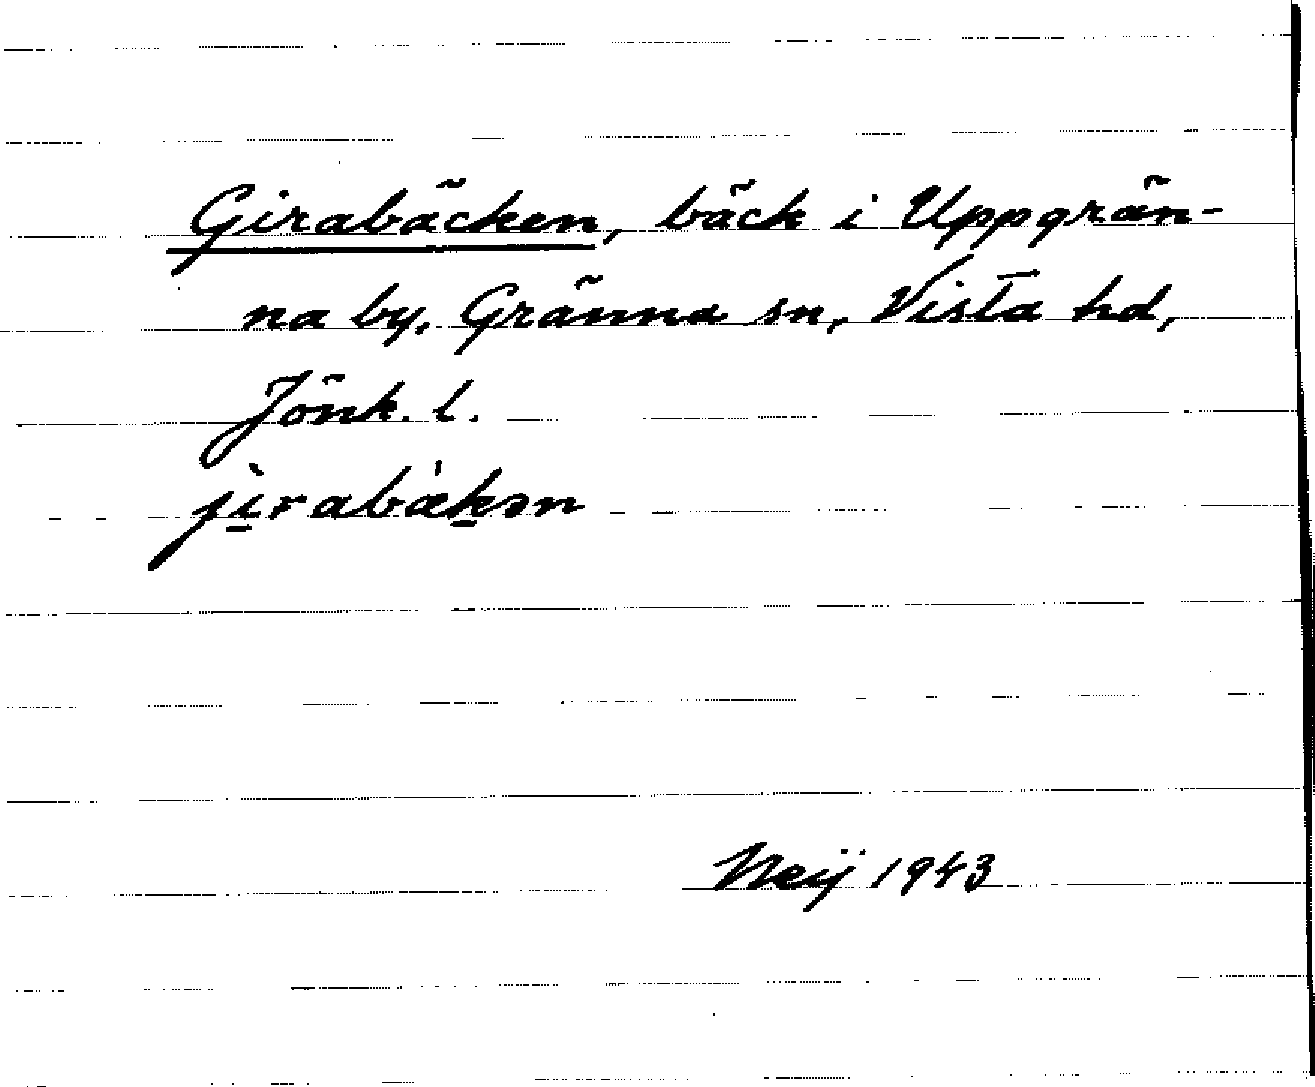 Girabäcken, bäck i Uppgrän-
na by, Gränna sn, Vista hd,
Jönk. l.
jì̱rabæ̀ḵən
Neij 1943